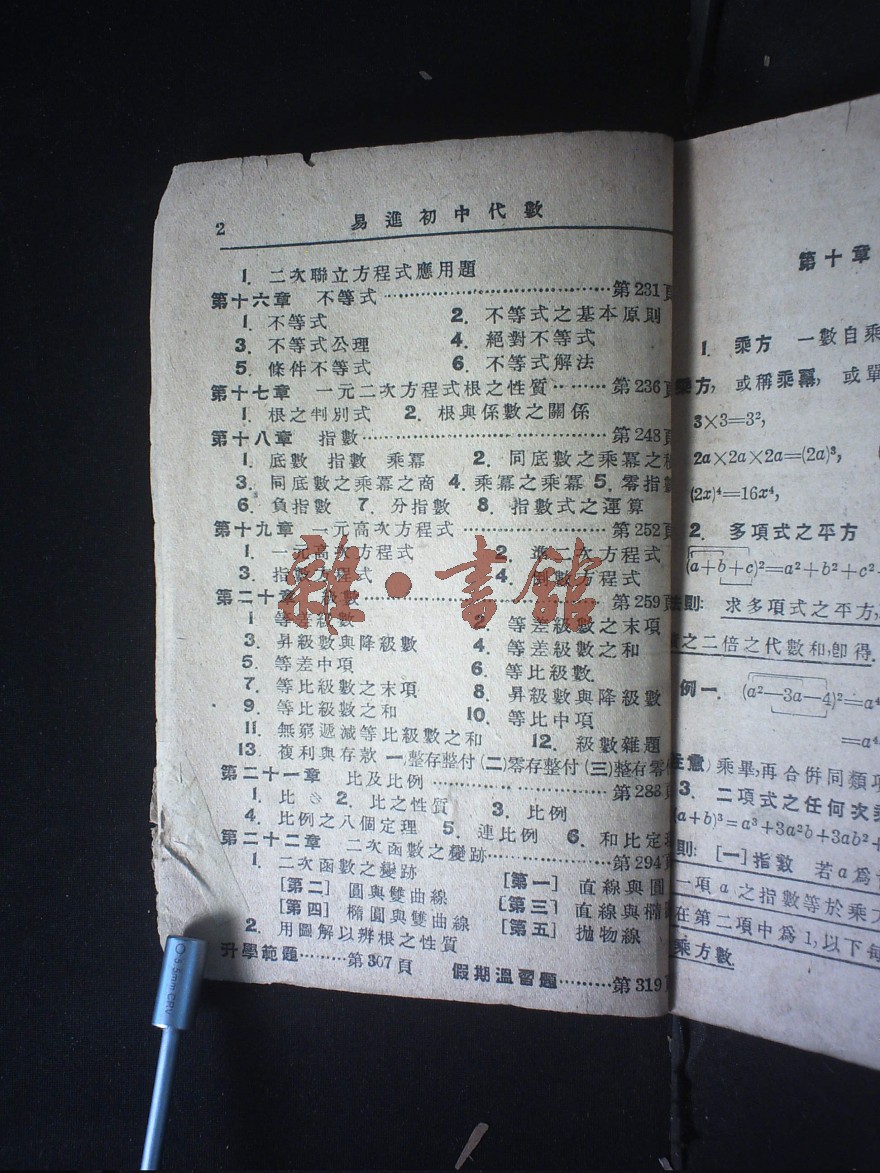 2 易進初中代數
1. 二次聯立方程式應用題
第十六章 不等式……………………第231頁
1. 不等式 2. 不等式之基本原則
3. 不等式公理 4. 絕對不等式
5. 條件不等式 6. 不等式解法
第十七章 一元二次方程式根之性質………第236頁
1. 根之判別式 2. 根與係數之關係
第十八章 指數……………………第248頁
1. 底數 指數 乘冪 2. 同底數之乘冪之
3. 同底數之乘冪之商 4. 乘冪之乘冪 5. 零指數
6. 負指數 7. 分指數 8. 指數式之運算
第十九章 一元高次方程式……………第252頁
1. 一元高次方程式 2. 準二次方程式
3. 指數方程式 4. 倒數方程式
第二十章 級數……………………第259頁
1 等差級數 2. 等差級數之末項
3. 昇級數與降級數 4. 等差級數之和
5. 等差中項 6. 等比級數.
7. 等比級數之末項 8. 昇級數與降級數
9. 等比級數之和 10. 等比中項
11. 無窮遞減等比級數之和 12. 級數雜題
13. 複利與存款 (一)整存整付(二)零存整付(三)整存零
第二十一章 比及比例……………第288頁
1. 比 2. 比之性質 3. 比例
4. 比例之八個定理 5. 連比例 6. 和比定
第二十二章 二次函數之變跡…………第294頁
1. 二次函數之變跡 [第一] 直線與圓
[第二] 圓與雙曲線 [第三] 直線與橢
[第四] 橢圓與雙曲線 [第五] 拋物線
2. 用圖解以辨根之性質
升學範題………第307頁 假期溫習題………第319頁
雜·書館
5.5mm CRV
第十章
1. 乘方 一數自乘
乘方, 或稱乘冪, 或單
3×3=3²,
2a×2a×2a=(2a)³,
(2x)⁴=16x⁴,
2. 多項式之平方
(a+b+c)²=a²+b²+c²
法則: 求多項式之平方,
之二倍之代數和,卽得.
例一. (a²—3a—4)²=a⁴
=a⁴
注意) 乘畢,再合併同類項
3. 二項式之任何次乘
(a+b)³=a³+3a²b+3ab²+
則: [一]指數 若a爲
一項a之指數等於乘方
在第二項中爲1,以下每
乘方數.